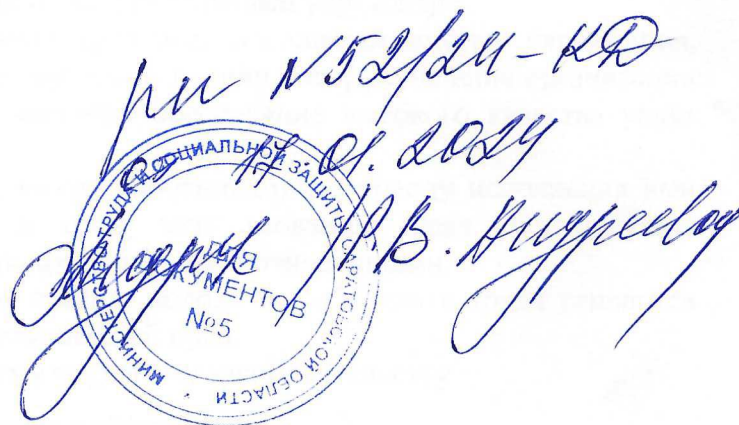 рег N52/24-КД
от 17.01.2024
В. Андреева
МИНИСТЕРСТВО ТРУДА И СОЦИАЛЬНОЙ ЗАЩИТЫ САРАТОВСКОЙ ОБЛАСТИ
ДЛЯ
ДОКУМЕНТОВ
№5